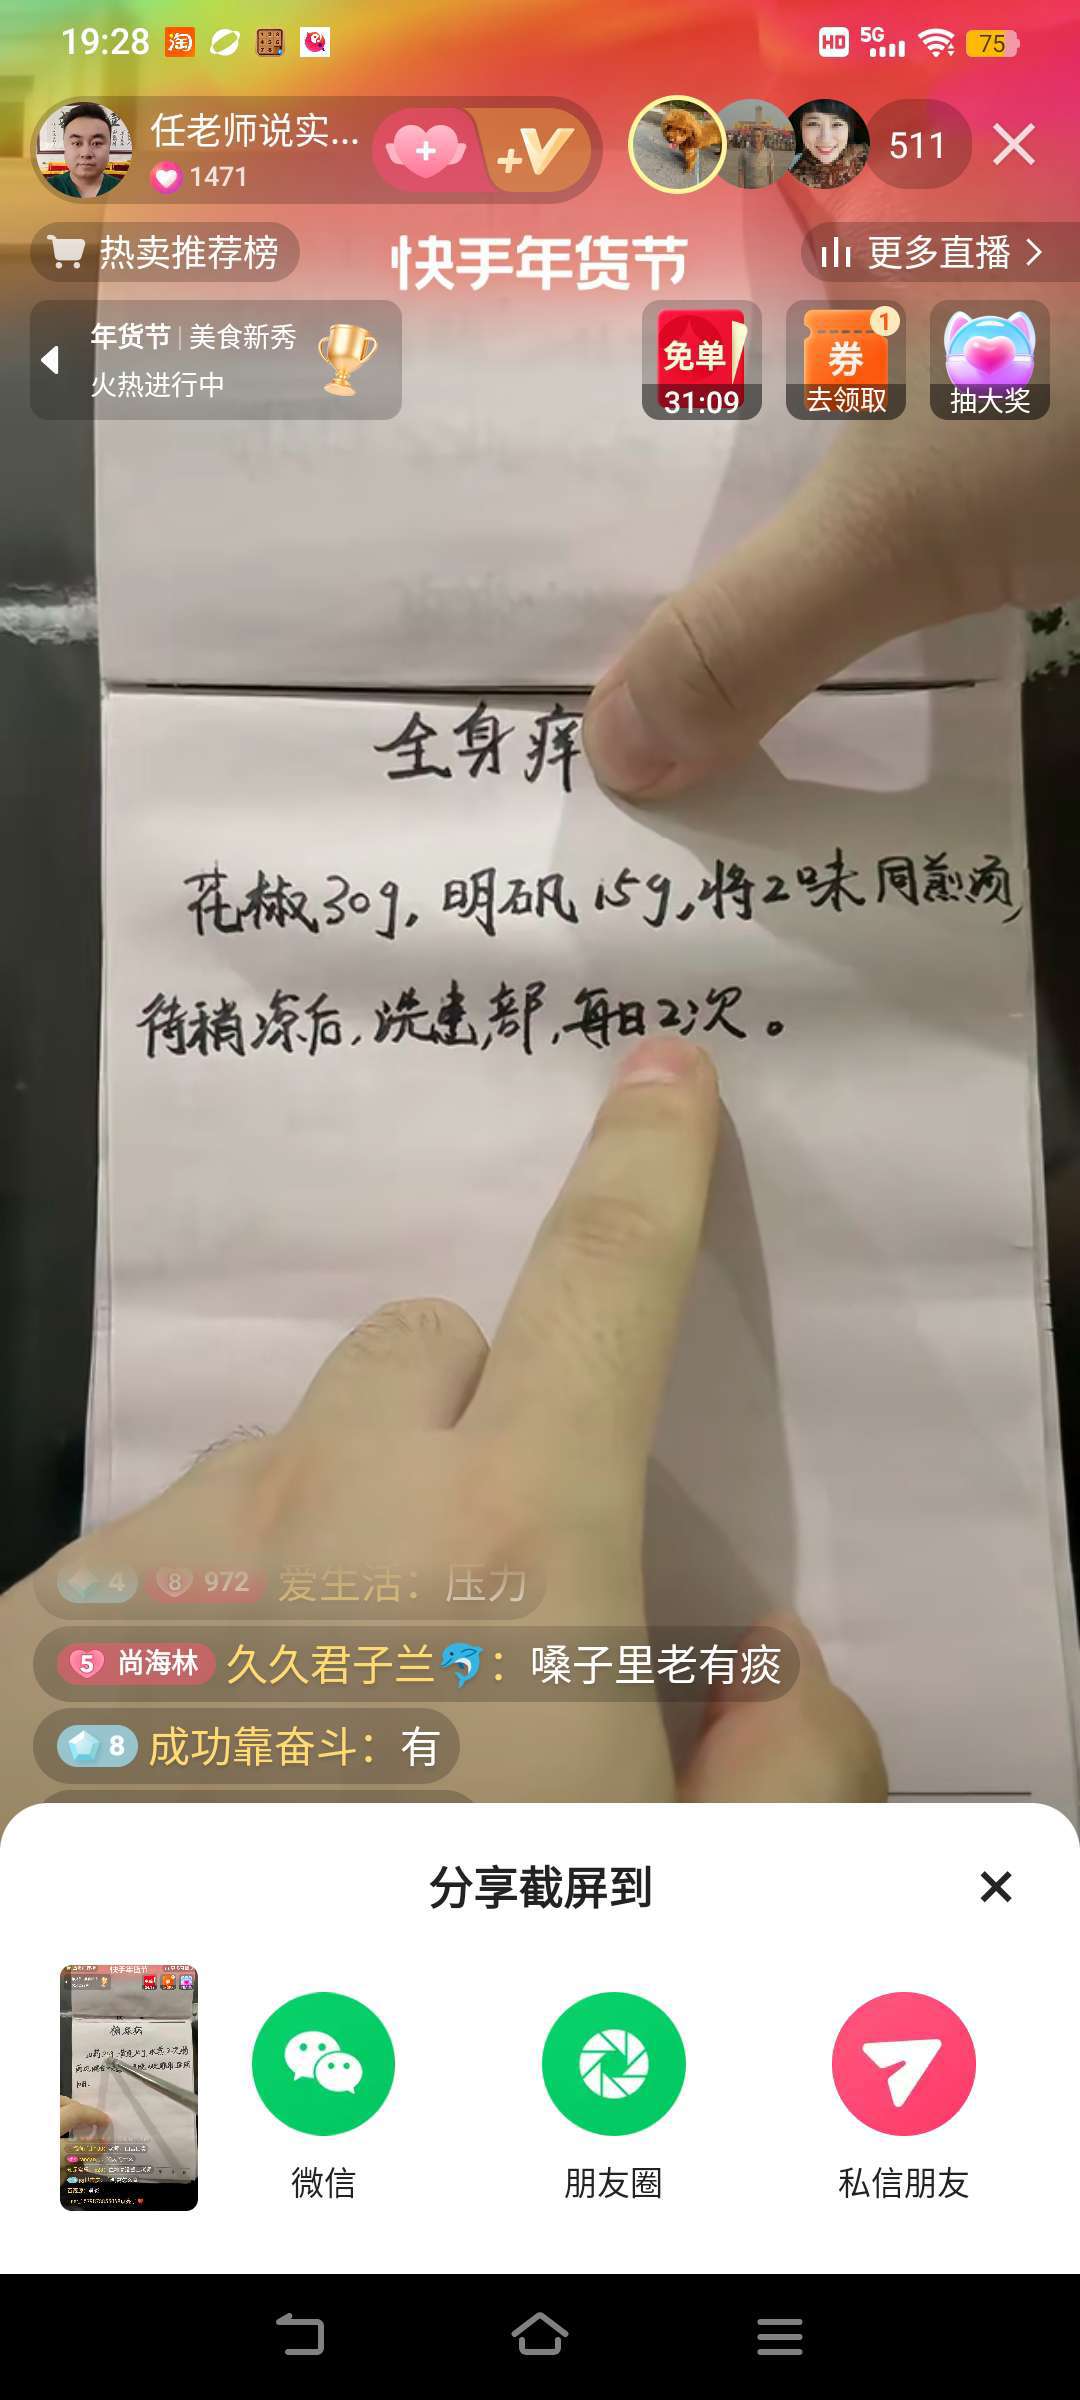 19:28
淘
HD 5G 75
任老师说实...
1471
+V
511
热卖推荐榜
快手年货节
更多直播
年货节 | 美食新秀
火热进行中
免单
31:09
券
1
去领取
抽大奖
全身痒
花椒30g,明矾15g,将2味同煎汤,
待稍凉后,洗患部,每日2次。
4 8 972 爱生活：压力
5 尚海林 久久君子兰：嗓子里老有痰
8 成功靠奋斗：有
分享截屏到
快手年货节
糖尿病
微信
朋友圈
私信朋友